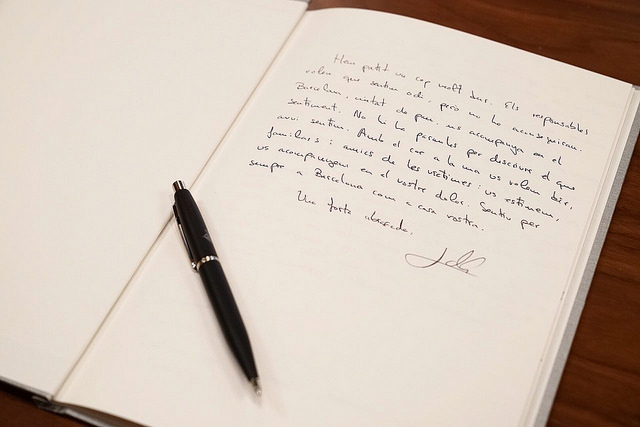 Hem patit un cop molt dur. Els responsables
volen que sentim odi, però no ho aconseguiran.
Barcelona, ciutat de pau, us acompanya en el
sentiment. No hi ha paraules per descriure el que
avui sentim. Amb el cor a la mà us volem dir,
familiars i amics de les víctimes: us estimem,
us acompanyem en el vostre dolor. Sentiu per
sempre a Barcelona com a casa vostra.
Una forta abraçada.